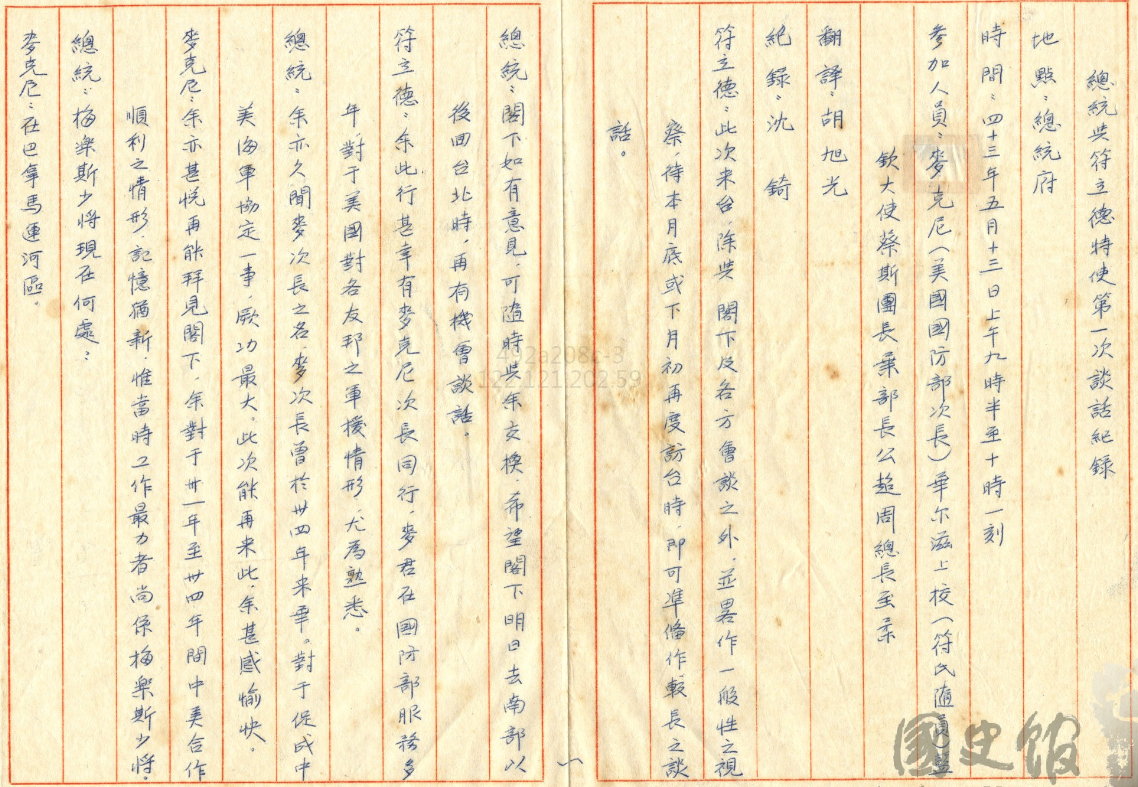 總統與符立德特使第一次談話紀錄
地點：總統府
時間：四十三年五月十三日上午九時半至十時一刻
參加人員：麥克尼（美國國防部次長）華尔滋上校（符氏隨員）藍
欽大使蔡斯團長葉部長公超周總長至柔
翻譯：胡旭光
紀錄：沈錡
符立德：此次来台，除與 閣下及各方會談之外，並畧作一般性之視
察，待本月底或下月初再度訪台時，即可準備作較長之談
話。
總統：閣下如有意見，可隨時與余交換，希望閣下明日去南部以
後回台北時，再有機會談話。
符立德：余此行甚幸有麥克尼次長同行，麥君在國防部服務多
年，對于美國對各友邦之軍援情形，尤為熟悉。
總統：余亦久聞麥次長之名，麥次長曾於卅四年来華。對于促成中
美海軍協定一事，厥功最大，此次能再来此，余甚感愉快。
麥克尼：余亦甚悅再能拜見閣下，余對于卅一年至卅四年間中美合作
順利之情形，記憶猶新，惟當時工作最力者尚係梅樂斯少將。
總統：梅樂斯少將現在何處？
麥克尼：在巴拿馬運河區。
一
國史館
492a208c-3
122.121.202.59